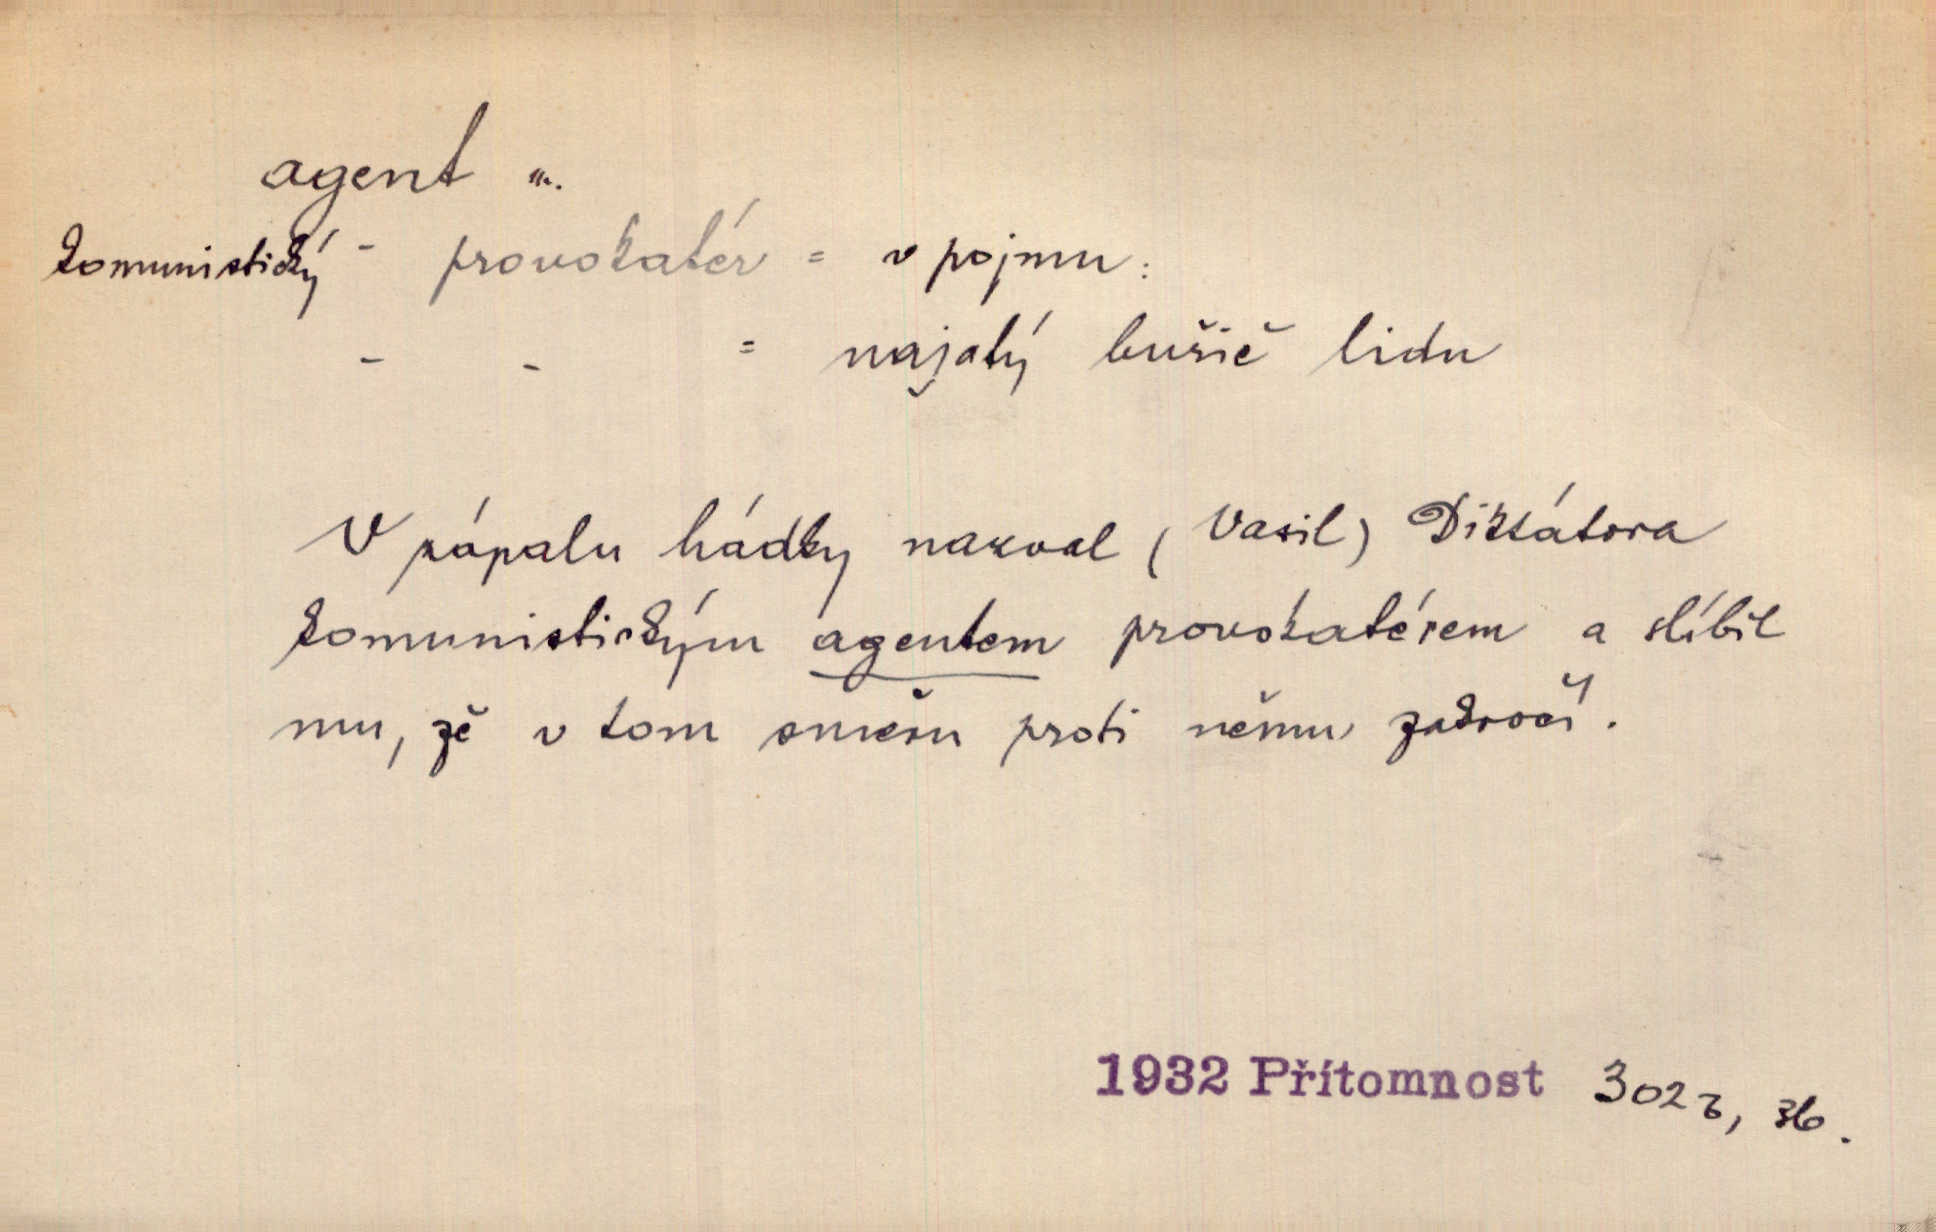 agent m.
komunistický - provokatér = v pojmu:
- - = najatý buřič lidu
V zápalu hádky nazval (Vasil) Diktátora
komunistickým agentem provokatérem a slíbil
mu, že v tom směru proti němu zakročí.
1932 Přítomnost 302